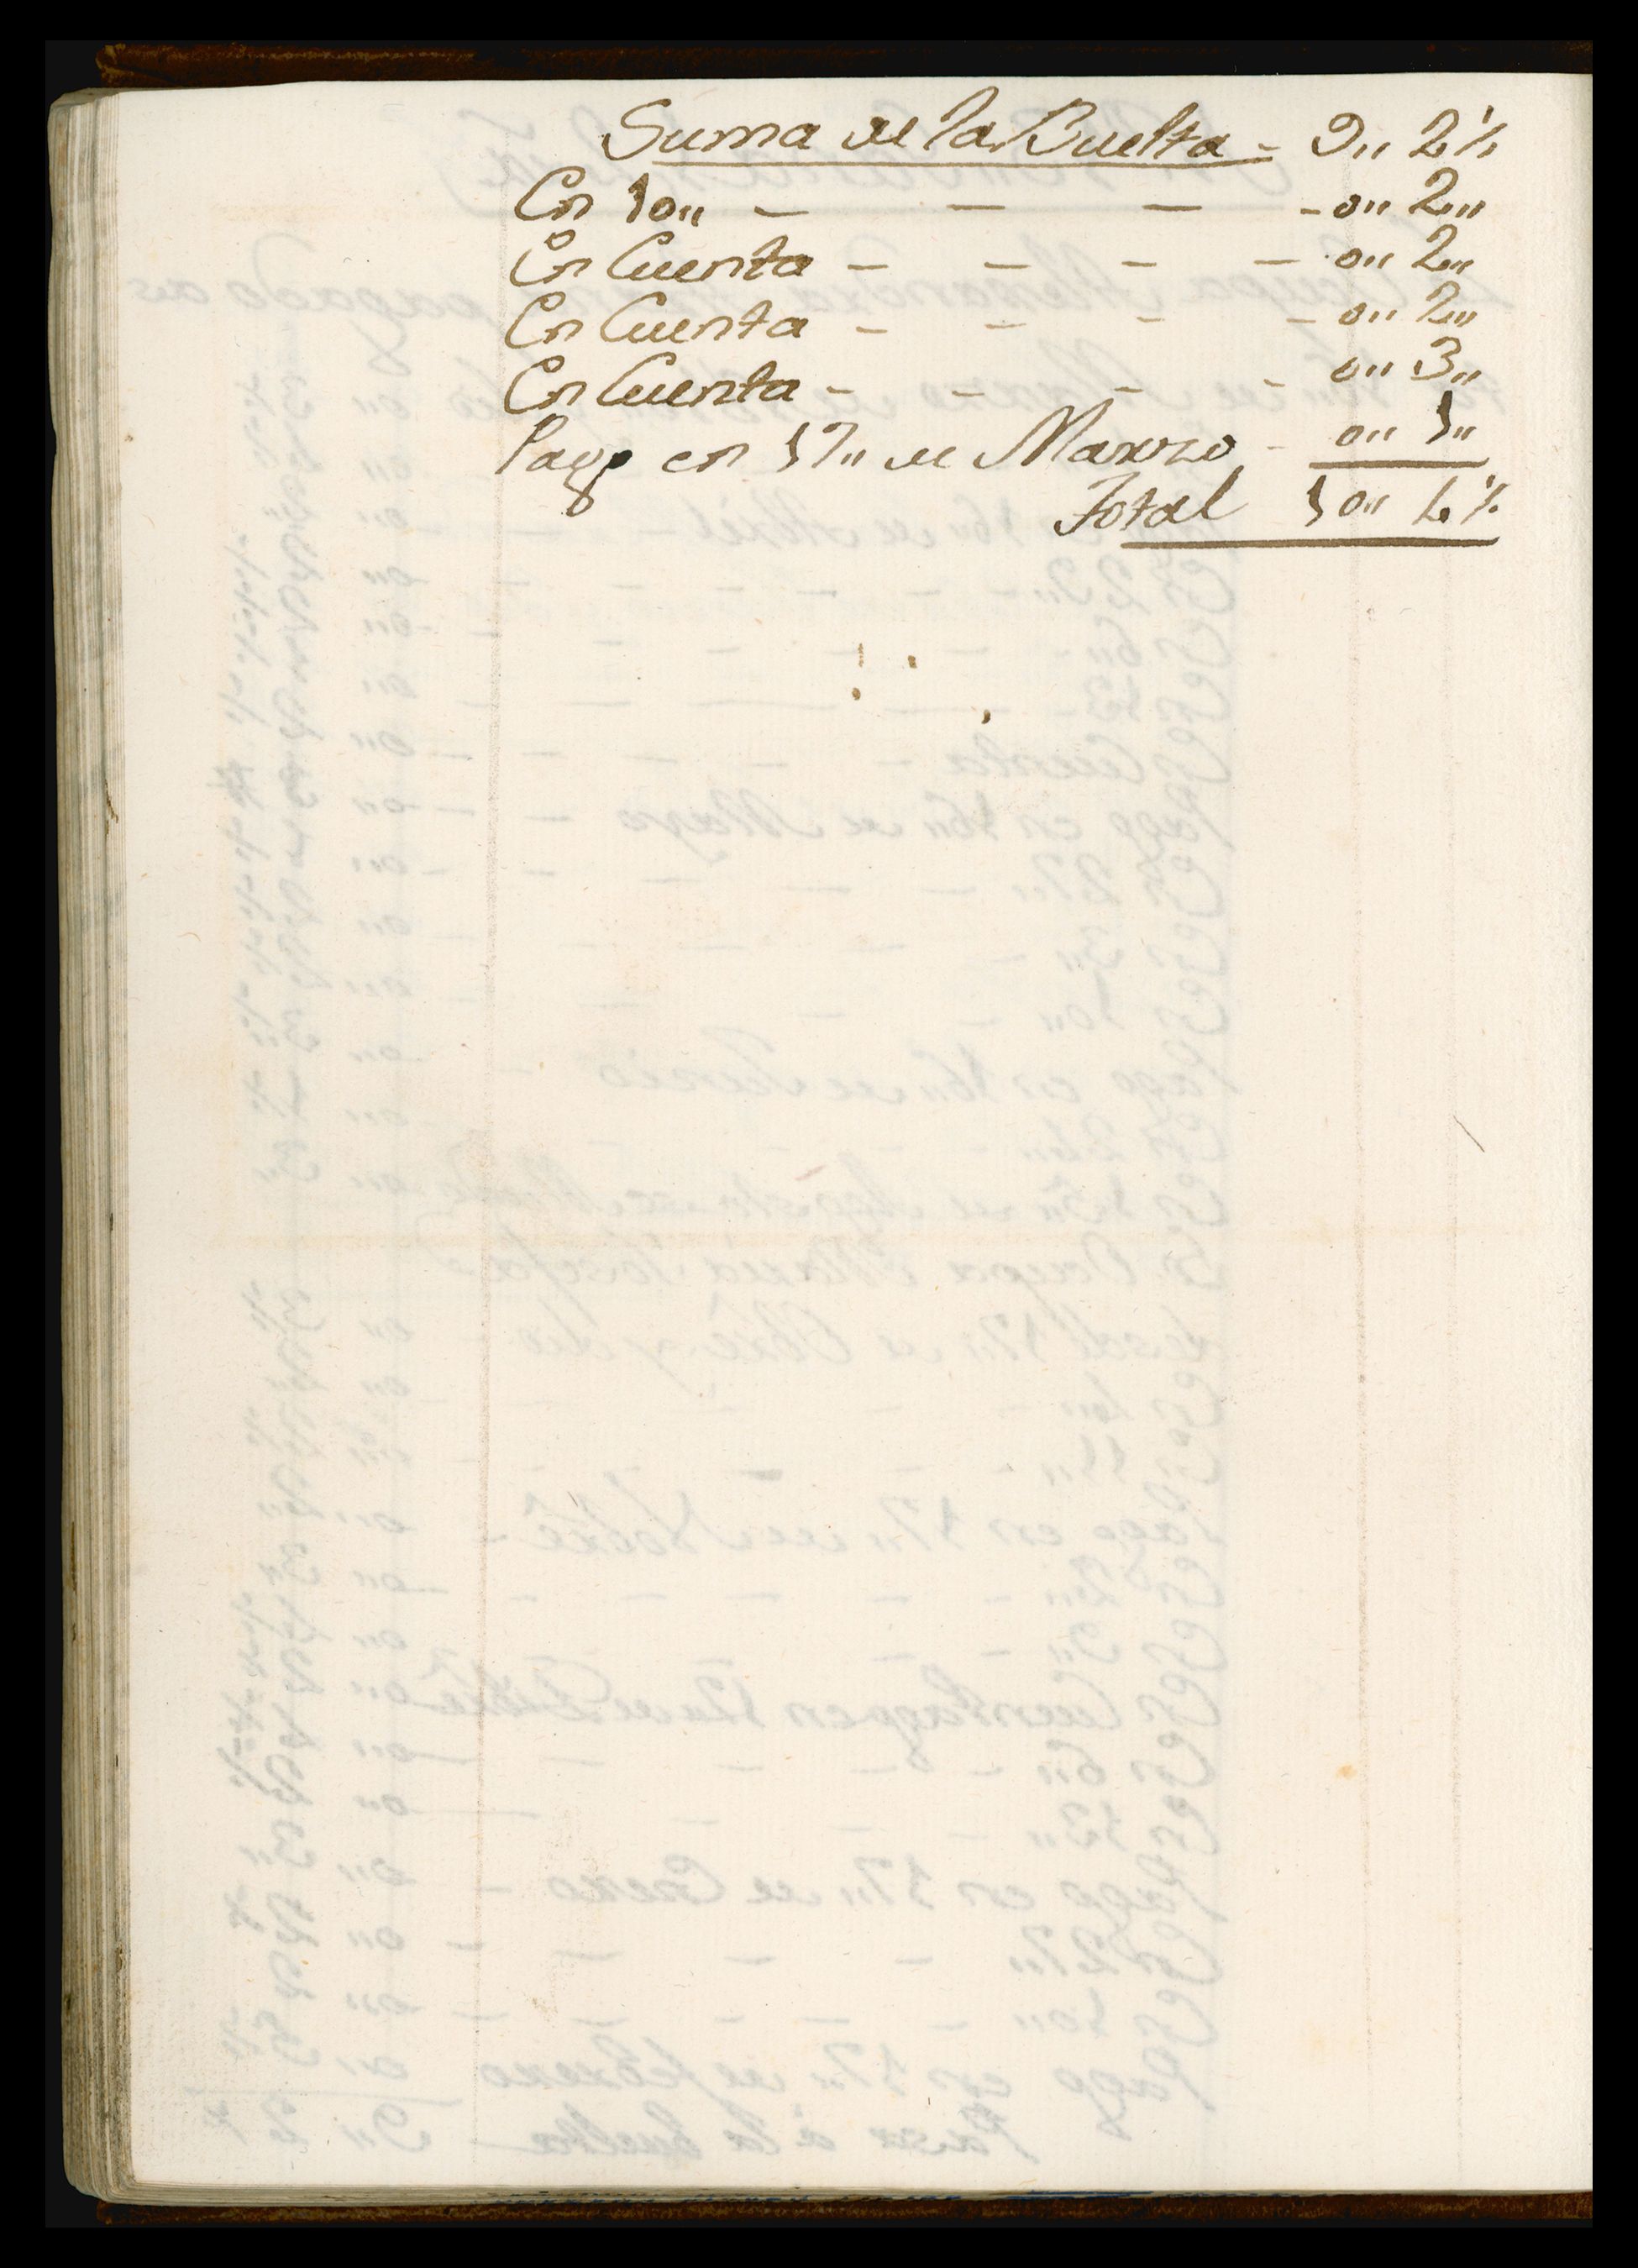 Suma de la Buelta - 9,, 2½
En 10,, - - - - 0,, 2,,
En Cuenta - - - - 0,, 2,,
En Cuenta - - - - 0,, 2,,
En Cuenta - - - - 0,, 3,,
Pago en 17,, de Marzo - 0,, 1,,
Total 10,, 4½